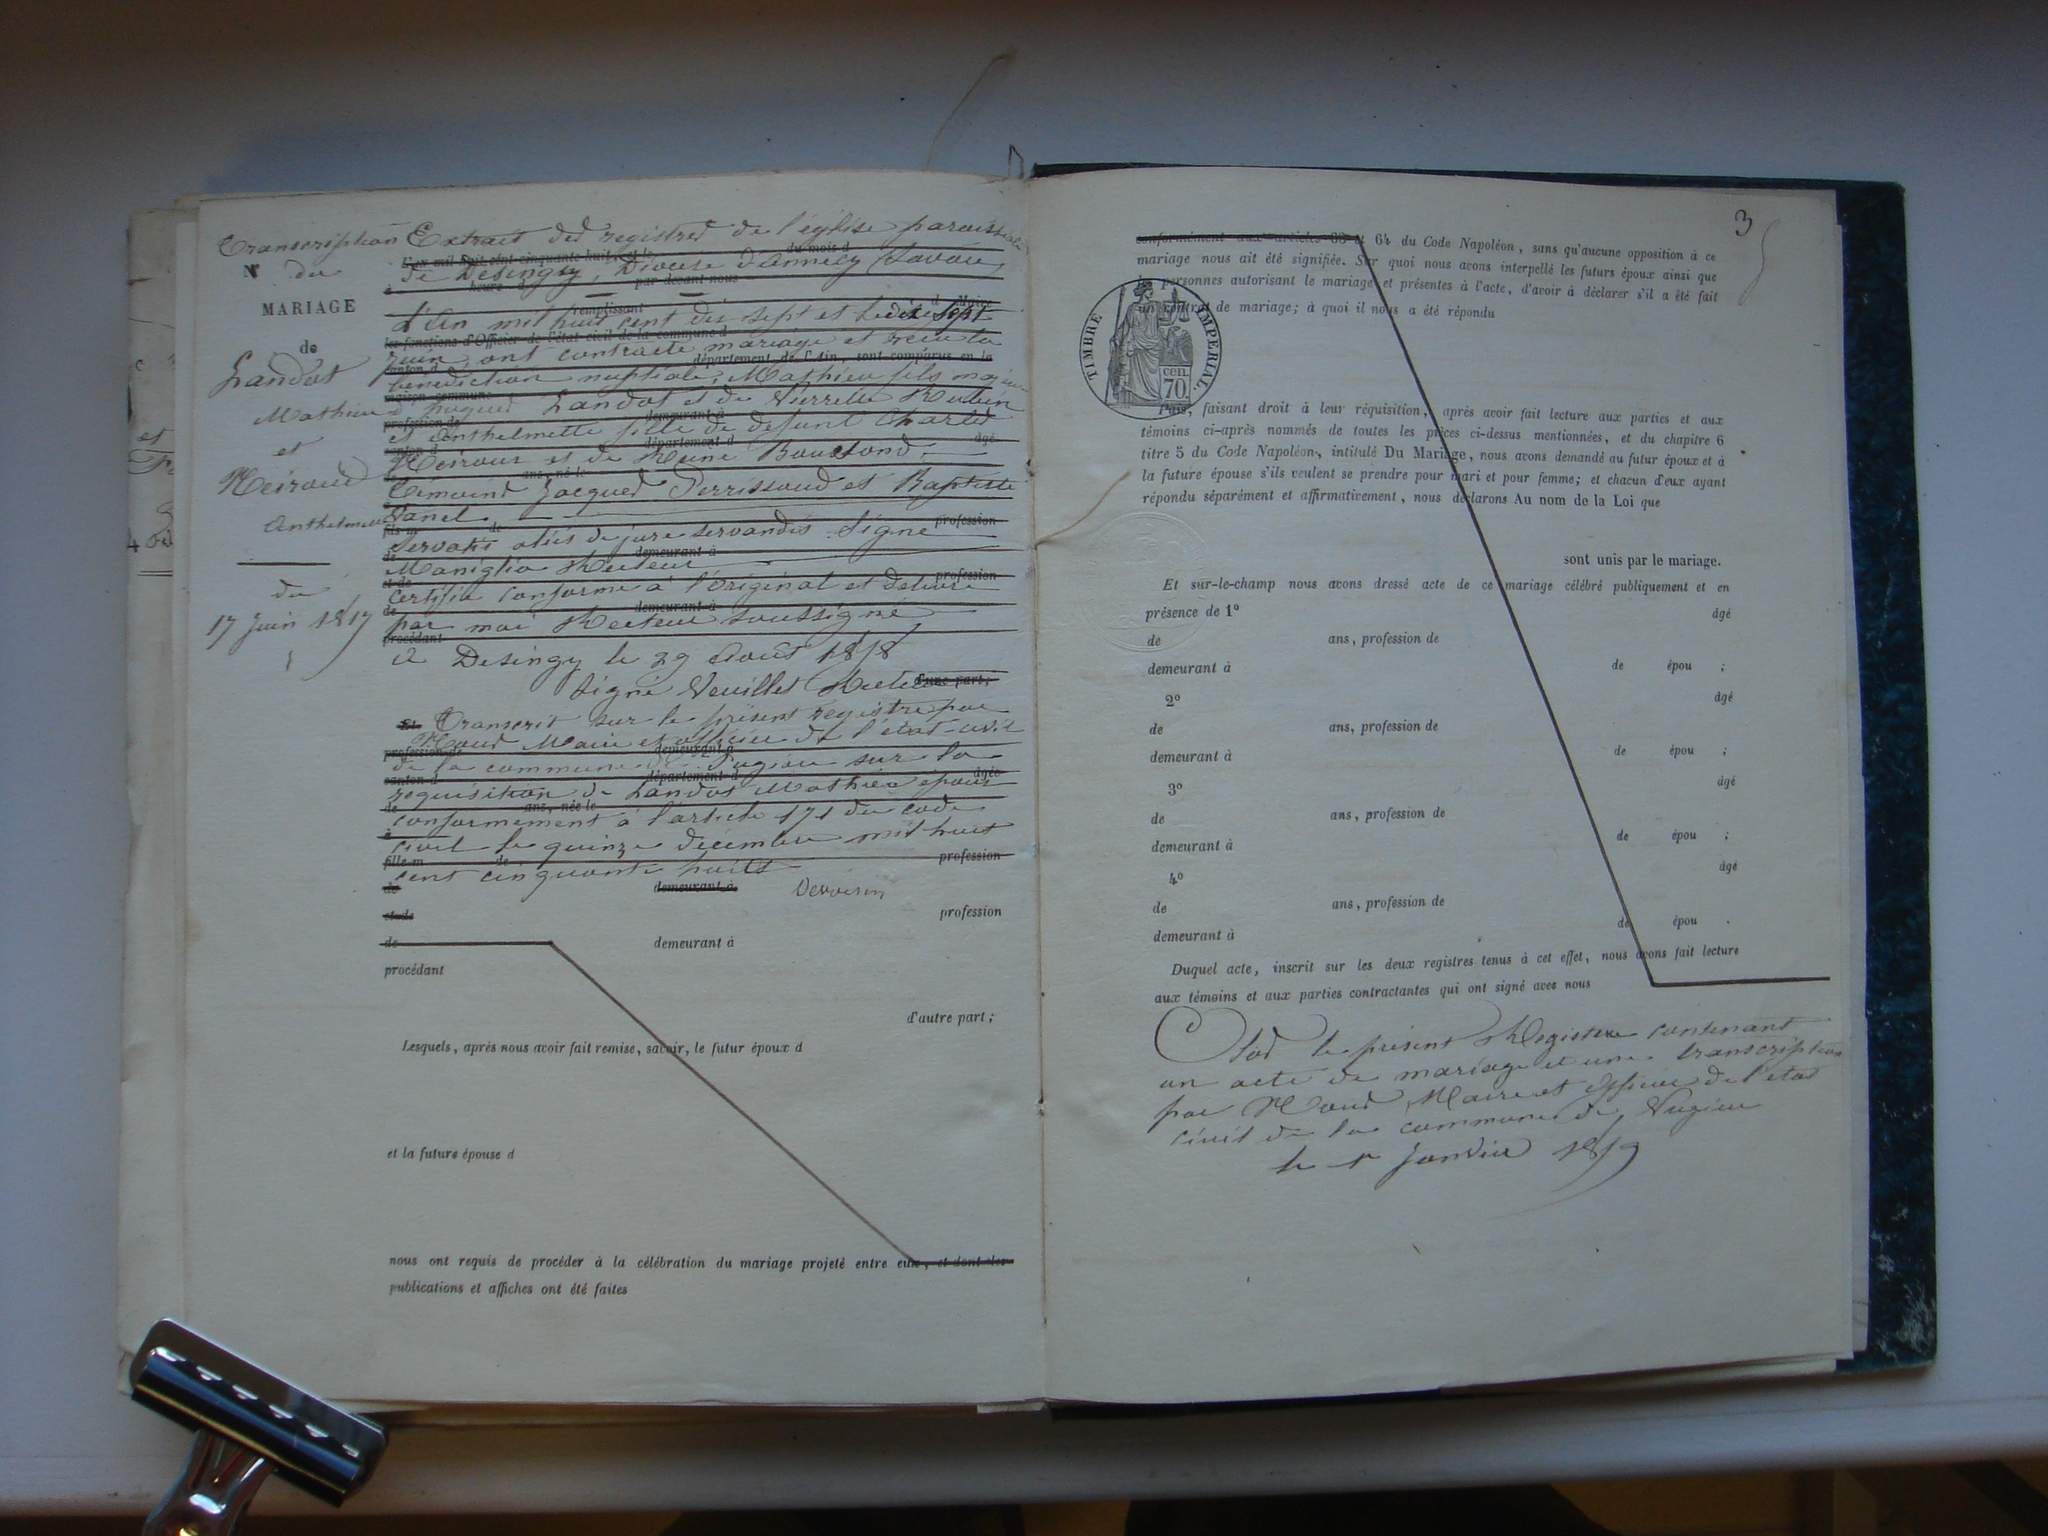 Transcription
N° du
MARIAGE
de
Landot
Mathieu
et
Meiroud
Anthelmette
du
17 Juin 1817
Extrait des registres de l'église paroissiale
L'an mil huit cent cinquante-huit, et le du mois d
de Desingy, Diocèse d'Annecy (Savoie)
à heure d par devant nous
remplissant d Maire
L'An mil huit cent dix sept et le dix sept
les fonctions d'Officier de l'état civil de la commune d
juin ont contracté mariage et reçu la
canton d département de l'Ain, sont comparus en la
bénédiction nuptiale, Mathieu fils majeur
maison commune
d jacques Landot et de Pierrette Rubin
profession de demeurant à
et Anthelmette fille de defunt Charles
canton d département d âgé
Meiroud et de Reine
ans, né le
Témoins Jacques Perrissoud et Baptiste
Vanel.
fils m de profession
Servatis aliis de jure servandis Signé
de demeurant à
Maniglier Recteur
et de profession
Certifié conforme à l'Original et Delivré
de demeurant à
par moi Recteur soussigné
procédant
à Desingy le 29 Août 1858
d'une part;
Signé Veuillet Recteur
Et Transcrit sur le présent registre par
Nous Maire et officier de l'état-civil
profession de demeurant à
de la commune de Vugieu sur la
canton d département d âgée
requisition de Landot Mathieu époux
de ans, née le
conformément à l'article 171 du code
à
civil le quinze décembre mil huit
fille m de profession
cent cinquante huit
de demeurant à
et de profession
de demeurant à
procédant
d'autre part;
Lesquels, après nous avoir fait remise, savoir, le futur époux d
et la future épouse d
nous ont requis de procéder à la célébration du mariage projeté entre eux, et dont les
publications et affiches ont été faites
3
conformément aux articles 63 et 64 du Code Napoléon, sans qu'aucune opposition à ce
mariage nous ait été signifiée. Sur quoi nous avons interpellé les futurs époux ainsi que
les personnes autorisant le mariage et présentes à l'acte, d'avoir à déclarer s'il a été fait
un contrat de mariage; à quoi il nous a été répondu
TIMBRE IMPERIAL.
cen.
70.
Puis, faisant droit à leur réquisition, après avoir fait lecture aux parties et aux
témoins ci-après nommés de toutes les pièces ci-dessus mentionnées, et du chapitre 6
titre 5 du Code Napoléon, intitulé Du Mariage, nous avons demandé au futur époux et à
la future épouse s'ils veulent se prendre pour mari et pour femme; et chacun d'eux ayant
répondu séparément et affirmativement, nous déclarons Au nom de la Loi que
sont unis par le mariage.
Et sur-le-champ nous avons dressé acte de ce mariage célébré publiquement et en
présence de 1° âgé
de ans, profession de
demeurant à de épou ;
2° âgé
de ans, profession de
demeurant à de épou ;
3° âgé
de ans, profession de
demeurant à de épou ;
4° âgé
de ans, profession de
demeurant à de épou .
Duquel acte, inscrit sur les deux registres tenus à cet effet, nous avons fait lecture
aux témoins et aux parties contractantes qui ont signé avec nous
Clos le présent Registre contenant
un acte de mariage et une transcription
par Nous Maire et officier de l'état
civil de la commune de Vugieu
le 1er Janvier 1859